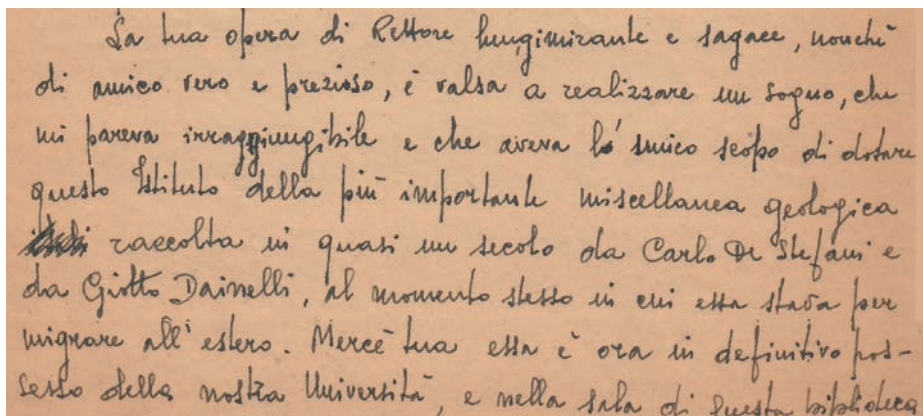 La tua opera di Rettore lungimirante e sagace, nonchè
di amico vero e prezioso, è valsa a realizzare un sogno, che
mi pareva irraggiungibile e che aveva lo unico scopo di dotare
questo Istituto della più importante miscellanea geologica
raccolta in quasi un secolo da Carlo De Stefani e
da Giotto Dainelli, al momento stesso in cui essa stava per
migrare all'estero. Mercè tua essa è ora in definitivo pos-
sesso della nostra Università, e nella sala di questa biblioteca